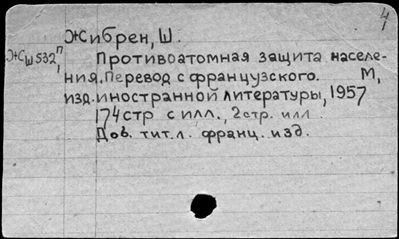 4/1
Жибрен, Ш.
ЖСш532,п Противоатомная защита населе-
ния. Перевод с французского. М,
изд. иностранной литературы, 1957
174стр с илл., 2стр. илл.
Доб. тит. л. франц. изд.